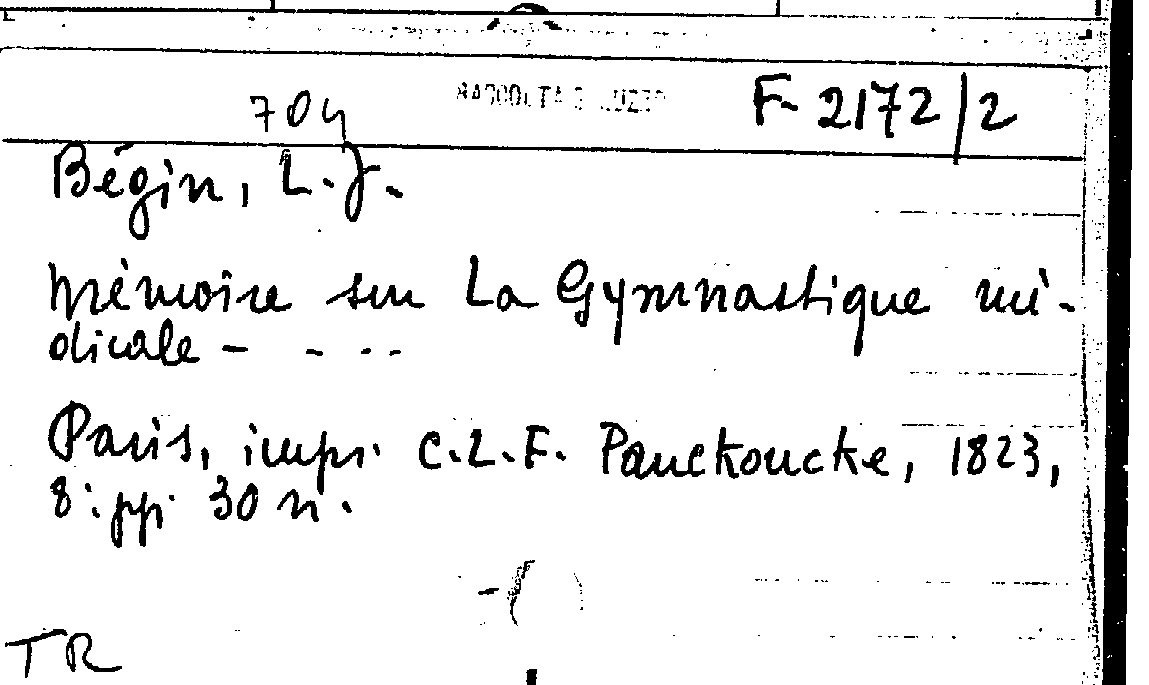 704 F 2172/2
Bégin, L.J.
Mémoire sur La Gymnastique mé-
dicale - - - -
Paris, impr. C.L.F. Panckoucke, 1823,
8: pp. 30 n.
TR